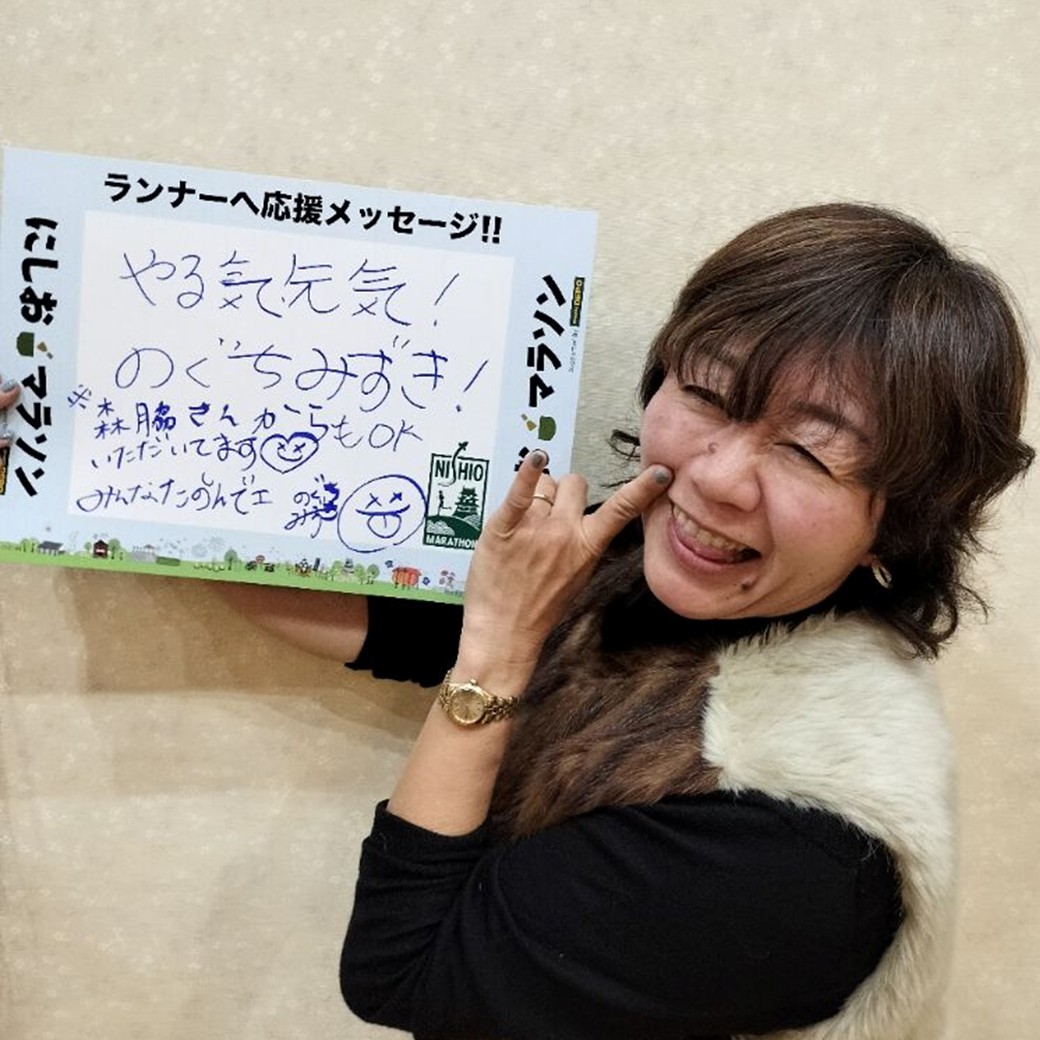 ランナーへ応援メッセージ!!
にしおマラソン
やる気元気!
のぐちみずき!
※森脇さんからもOK
いただいてます
みんなたのしんでエ
のぐみず
NISHIO
MARATHON
マラソン